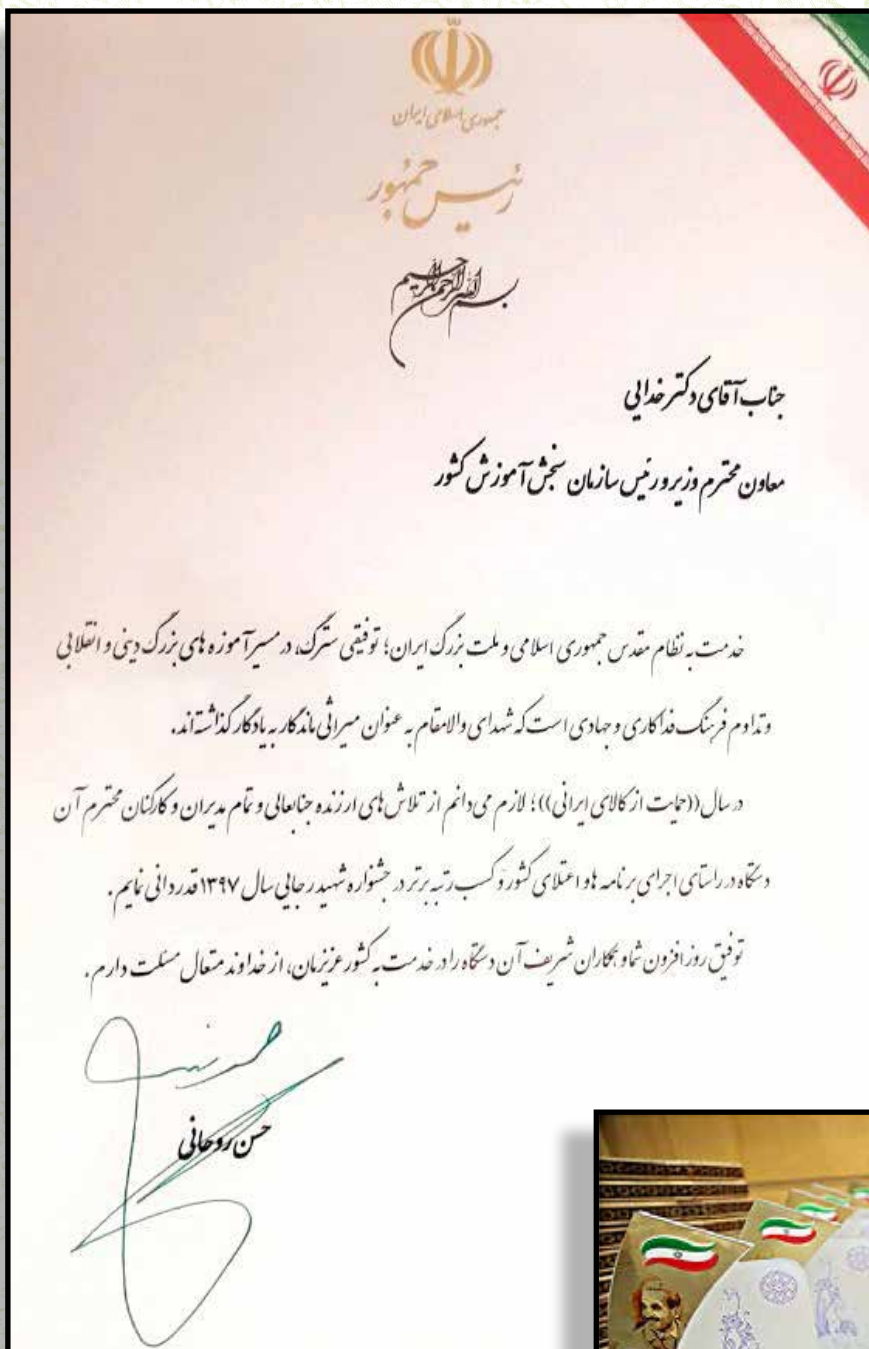 جمهوری اسلامی ایران
رئیس جمهور
بسم الله الرحمن الرحیم
جناب آقای دکتر خدایی
معاون محترم وزیر و رئیس سازمان سنجش آموزش کشور
خدمت به نظام مقدس جمهوری اسلامی و ملت بزرگ ایران؛ توفیقی سترگ، در مسیر آموزه های بزرگ دینی و انقلابی
و تداوم فرهنگ فداکاری و جهادی است که شهدای والامقام به عنوان میراثی ماندگار به یادگار گذاشته‌اند.
در سال ((حمایت از کالای ایرانی))؛ لازم می دانم از تلاش های ارزنده جنابعالی و تمام مدیران و کارکنان محترم آن
دستگاه در راستای اجرای برنامه ها و اعتلای کشور و کسب رتبه برتر در جشنواره شهید رجایی سال ۱۳۹۷ قدردانی نمایم.
توفیق روز افزون شما و همکاران شریف آن دستگاه را در خدمت به کشور عزیزمان، از خداوند متعال مسئلت دارم.
حسن روحانی